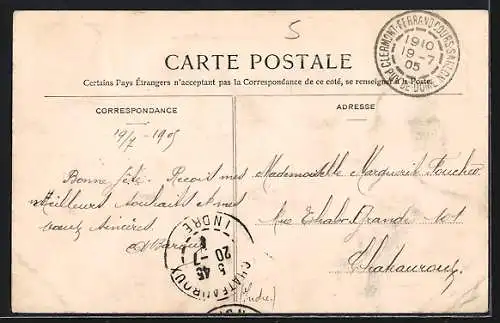 5
CARTE POSTALE
Certains Pays Étrangers n'acceptent pas la Correspondance de ce coté, se renseigner à la Poste.
CLERMONT-FERRAND-COURS-SABLON
1910
19-7
05
PUY-DE-DOME
CORRESPONDANCE
ADRESSE
19/7 - 1905
Bonne fête. Recevit mes
Meilleurs souhaits & mes
vœux sincères
Mademoiselle Marguerit
Rue
Chateauroux
(Indre)
CHATEAUROUX
5 45
20-7
INDRE